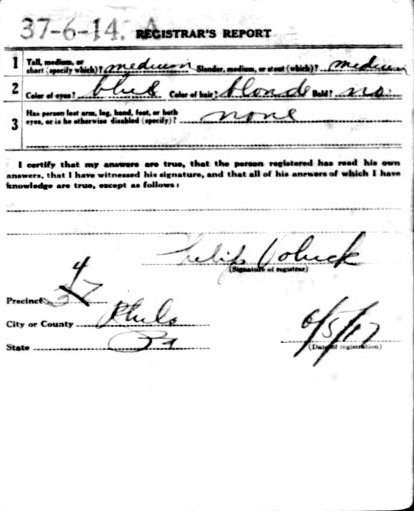 37-6-14. A
REGISTRAR'S REPORT
1 Tall, medium, or short (specify which)? medium Slender, medium, or stout (which)? medium
2 Color of eyes? blue Color of hair? blonde Bald? no
3 Has person lost arm, leg, hand, foot, or both eyes, or is he otherwise disabled (specify)? none
I certify that my answers are true, that the person registered has read his own
answers, that I have witnessed his signature, and that all of his answers of which I have
knowledge are true, except as follows:
Philip
(Signature of registrar)
4
Precinct 37
City or County Phila
State Pa
6/5/17
(Date of registration)